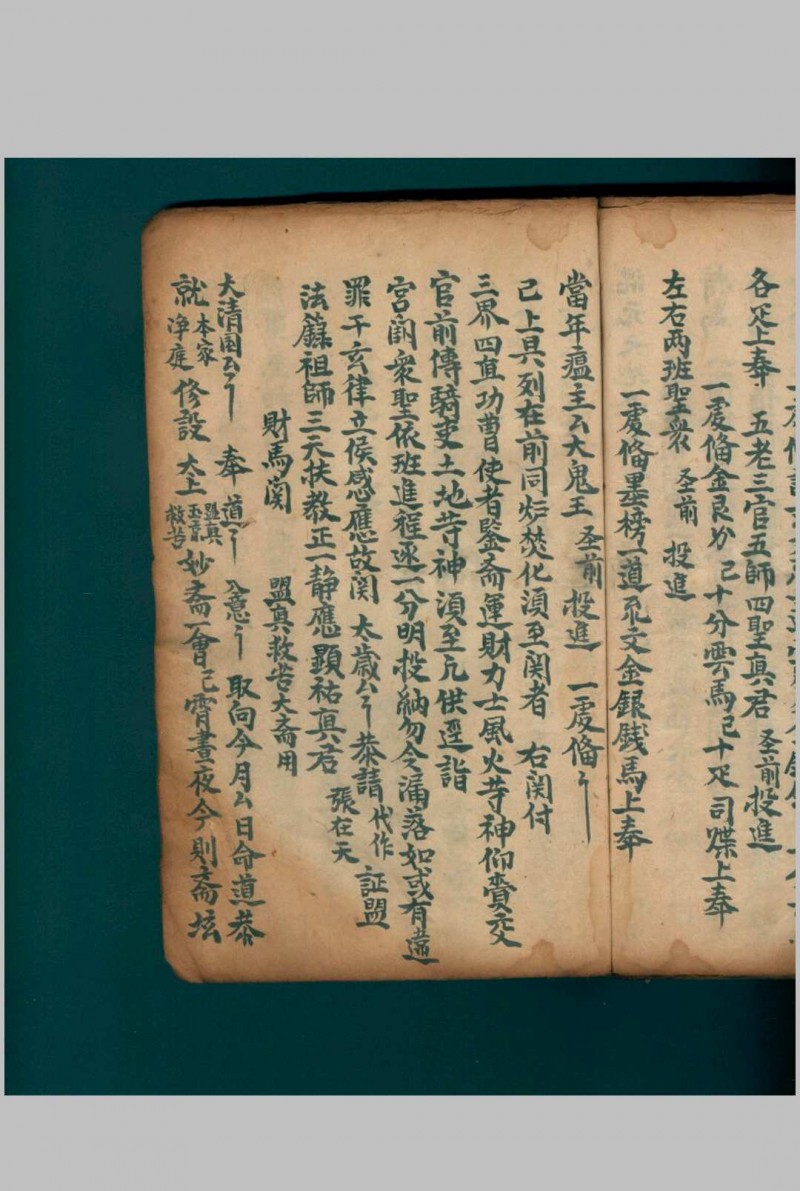 各疋上奉　五老三官五師四聖真君　圣前投進
一䖏俻金艮分　已十分雲馬已十疋司牒上奉
左右两班聖衆　圣前　投進
一䖏俻墨榜一道　文金銀錢馬上奉
當年瘟主厶大鬼王　圣前投進　一䖏俻
已上具列在前同炉焚化湏至関者　右関付
三界四直功曹使者鍳斋運財力士風火䓁神仰賫交
官前傳騎吏土地䓁神湏至凢供逕詣
宮闕衆聖依班進程逐一分明投納勿令漏落如或有違
罪干玄律立侯感應故関　太歲厶　恭請　代作　証盟
法籙祖師三天扶教正一静應顯祐真君　張在天
財馬関　盟真救苦大斋用
大清國厶　奉道　入意　取向今月厶日命道恭
就本家净庭修設　太上盟真玉章救苦妙斋一會已霄晝夜今則斋坛